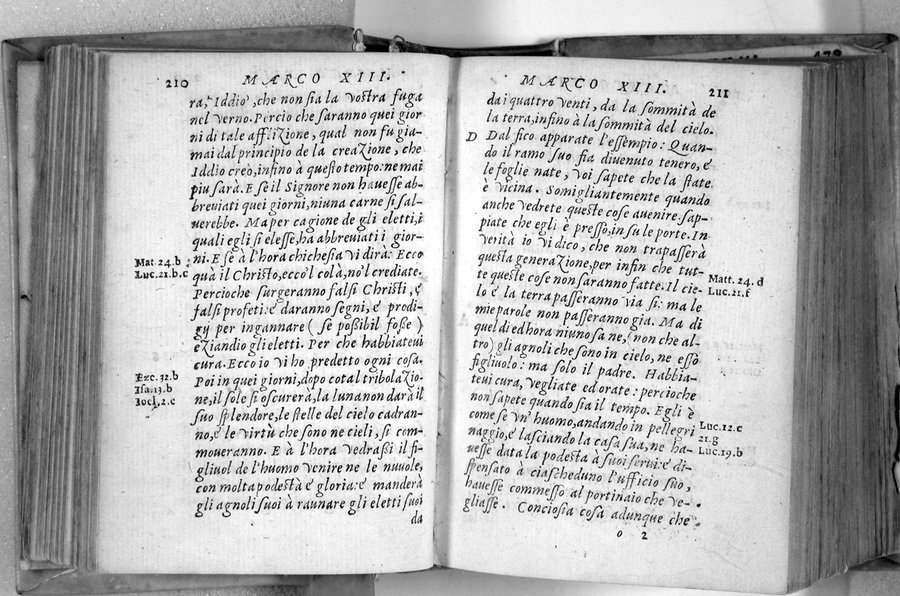 210
MARCO XIII.
ra, Iddio, che non sia la vostra fuga
nel verno. Percio che saranno quei gior
ni di tale afflizione, qual non fu gia-
mai dal principio de la creazione, che
Iddio creò, infino à questo tempo: ne mai
piu sarà. E se il Signore non hauesse ab-
breuiati quei giorni, niuna carne si sal-
uerebbe. Ma per cagione de gli eletti, i
quali egli si elesse, ha abbreuiati i gior-
ni. E se à l'hora chichesia vi dirà: Ecco
quà il Christo, ecco'l colà, no'l crediate.
Percioche surgeranno falsi Christi, e
falsi profeti: e daranno segni, e prodi-
gy per ingannare (se possibil fosse)
eziandio gli eletti. Per che habbiateui
cura. Ecco io vi ho predetto ogni cosa.
Poi in quei giorni, dopo cotal tribolazio-
ne, il sole si oscurerà, la luna non darà il
suo splendore, le stelle del cielo cadran-
no, e le virtù che sono ne cieli, si com-
moueranno. E à l'hora vedrassi il fi-
gliuol de l'huomo venire ne le nuuole,
con molta podestà e gloria: e manderà
gli agnoli suoi à raunare gli eletti suoi
da
Mat. 24. b
Luc. 21. b. c
Eze. 32. b
Isa. 13. b
Ioel, 2. c
MARCO XIII.
211
da i quattro venti, da la sommità de
la terra, infino à la sommità del cielo.
D Dal fico apparate l'essempio: Quan-
do il ramo suo fia diuenuto tenero, e
le foglie nate, voi sapete che la state
è vicina. Somigliantemente quando
anche vedrete queste cose auenire, sap-
piate che egli è presso, in su le porte. In
verità io vi dico, che non trapasserà
questa generazione, per infin che tut-
te queste cose non saranno fatte. Il cie-
lo e la terra passeranno via sì: ma le
mie parole non passeranno gia. Ma di
quel dì ed hora niuno sa ne, (non che al-
tro) gli agnoli che sono in cielo, ne esso
figliuolo: ma solo il padre. Habbia-
teui cura, vegliate ed orate: percioche
non sapete quando sia il tempo. Egli è
come se vn' huomo, andando in pellegri
naggio, e lasciando la casa sua, ne ha-
uesse data la podestà à suoi serui: e di-
spensato à ciascheduno l'ufficio suo,
hauesse commesso al portinaio che ve-
gliasse. Conciosia cosa adunque che
o 2
Matt. 24. d
Luc. 21. f
Luc. 12. c
21. g
Luc. 19. b